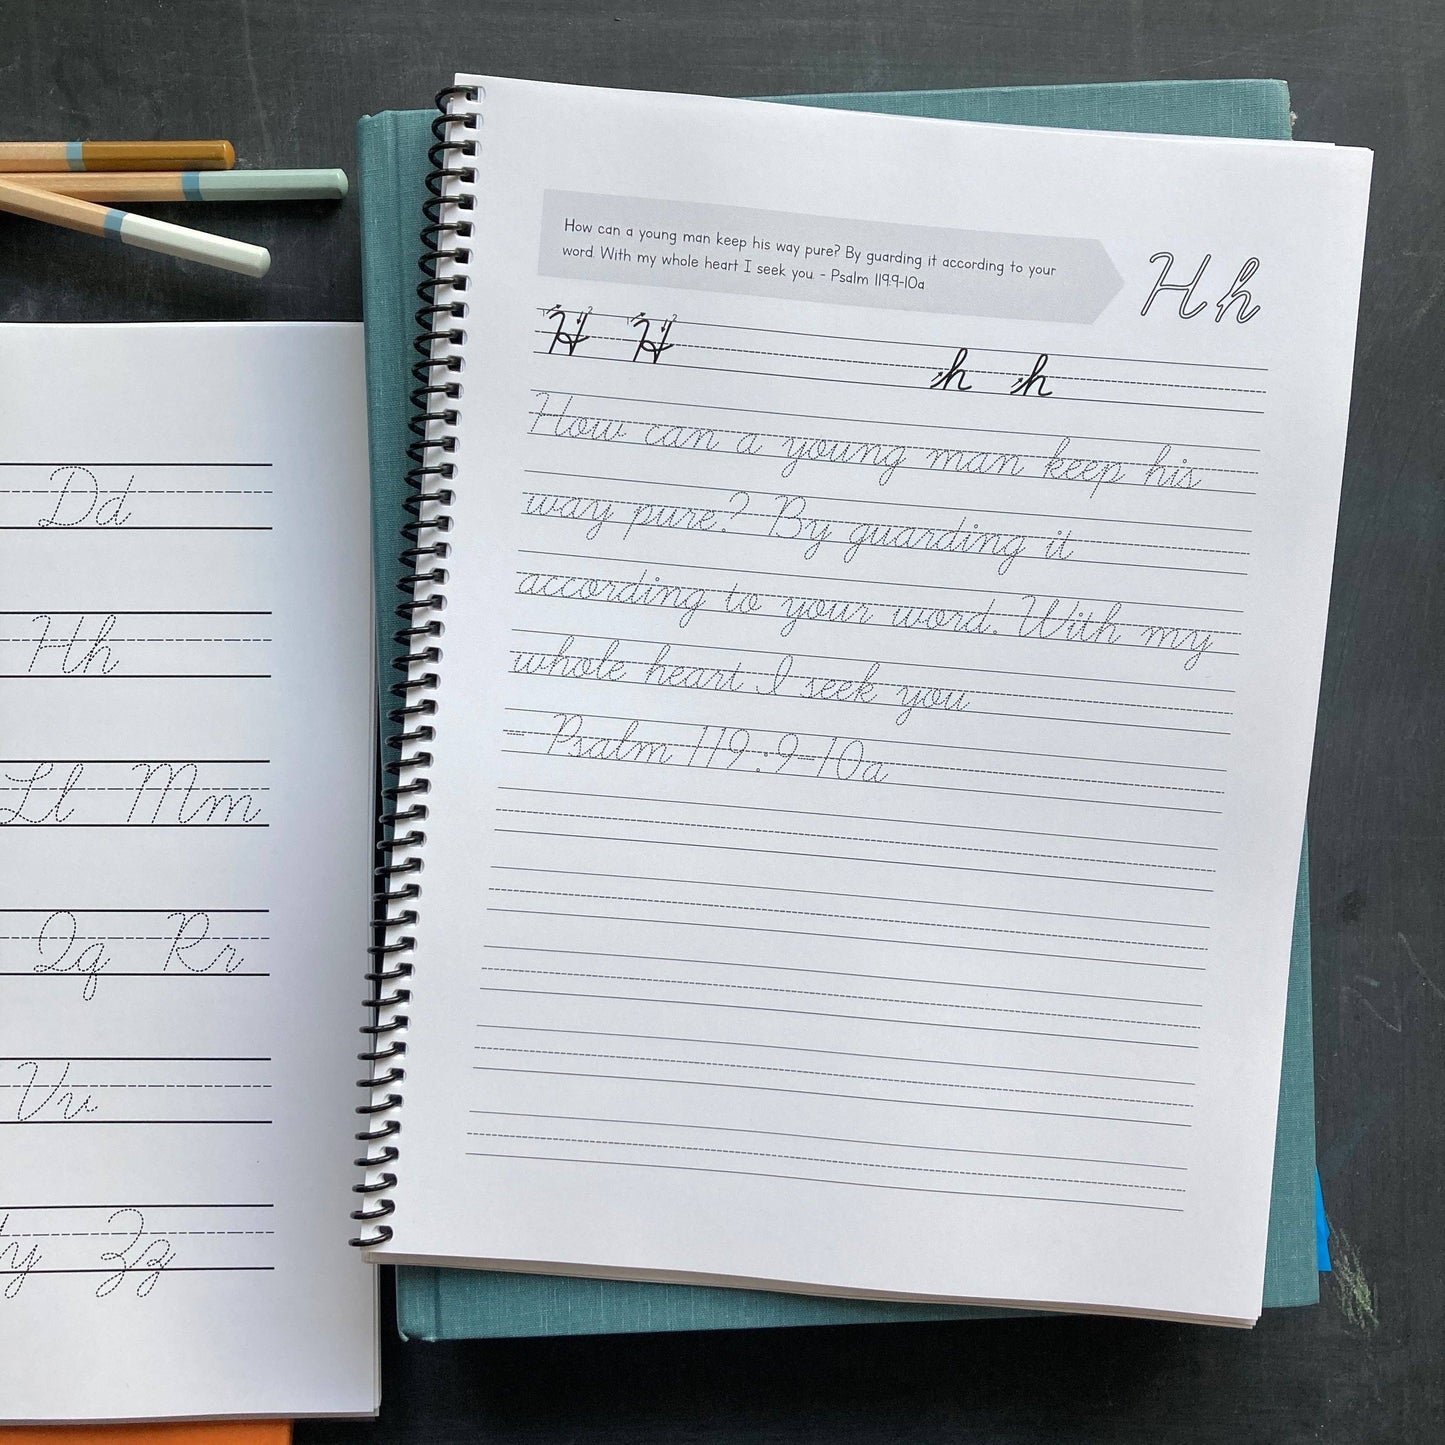 How can a young man keep his way pure? By guarding it according to your
word. With my whole heart I seek you. - Psalm 119:9-10a
H h
H H h h
How can a young man keep his
way pure? By guarding it
according to your word. With my
whole heart I seek you
- Psalm 119:9-10a
Dd
Hh
Ll Mm
Qq Rr
Vv
y Zz